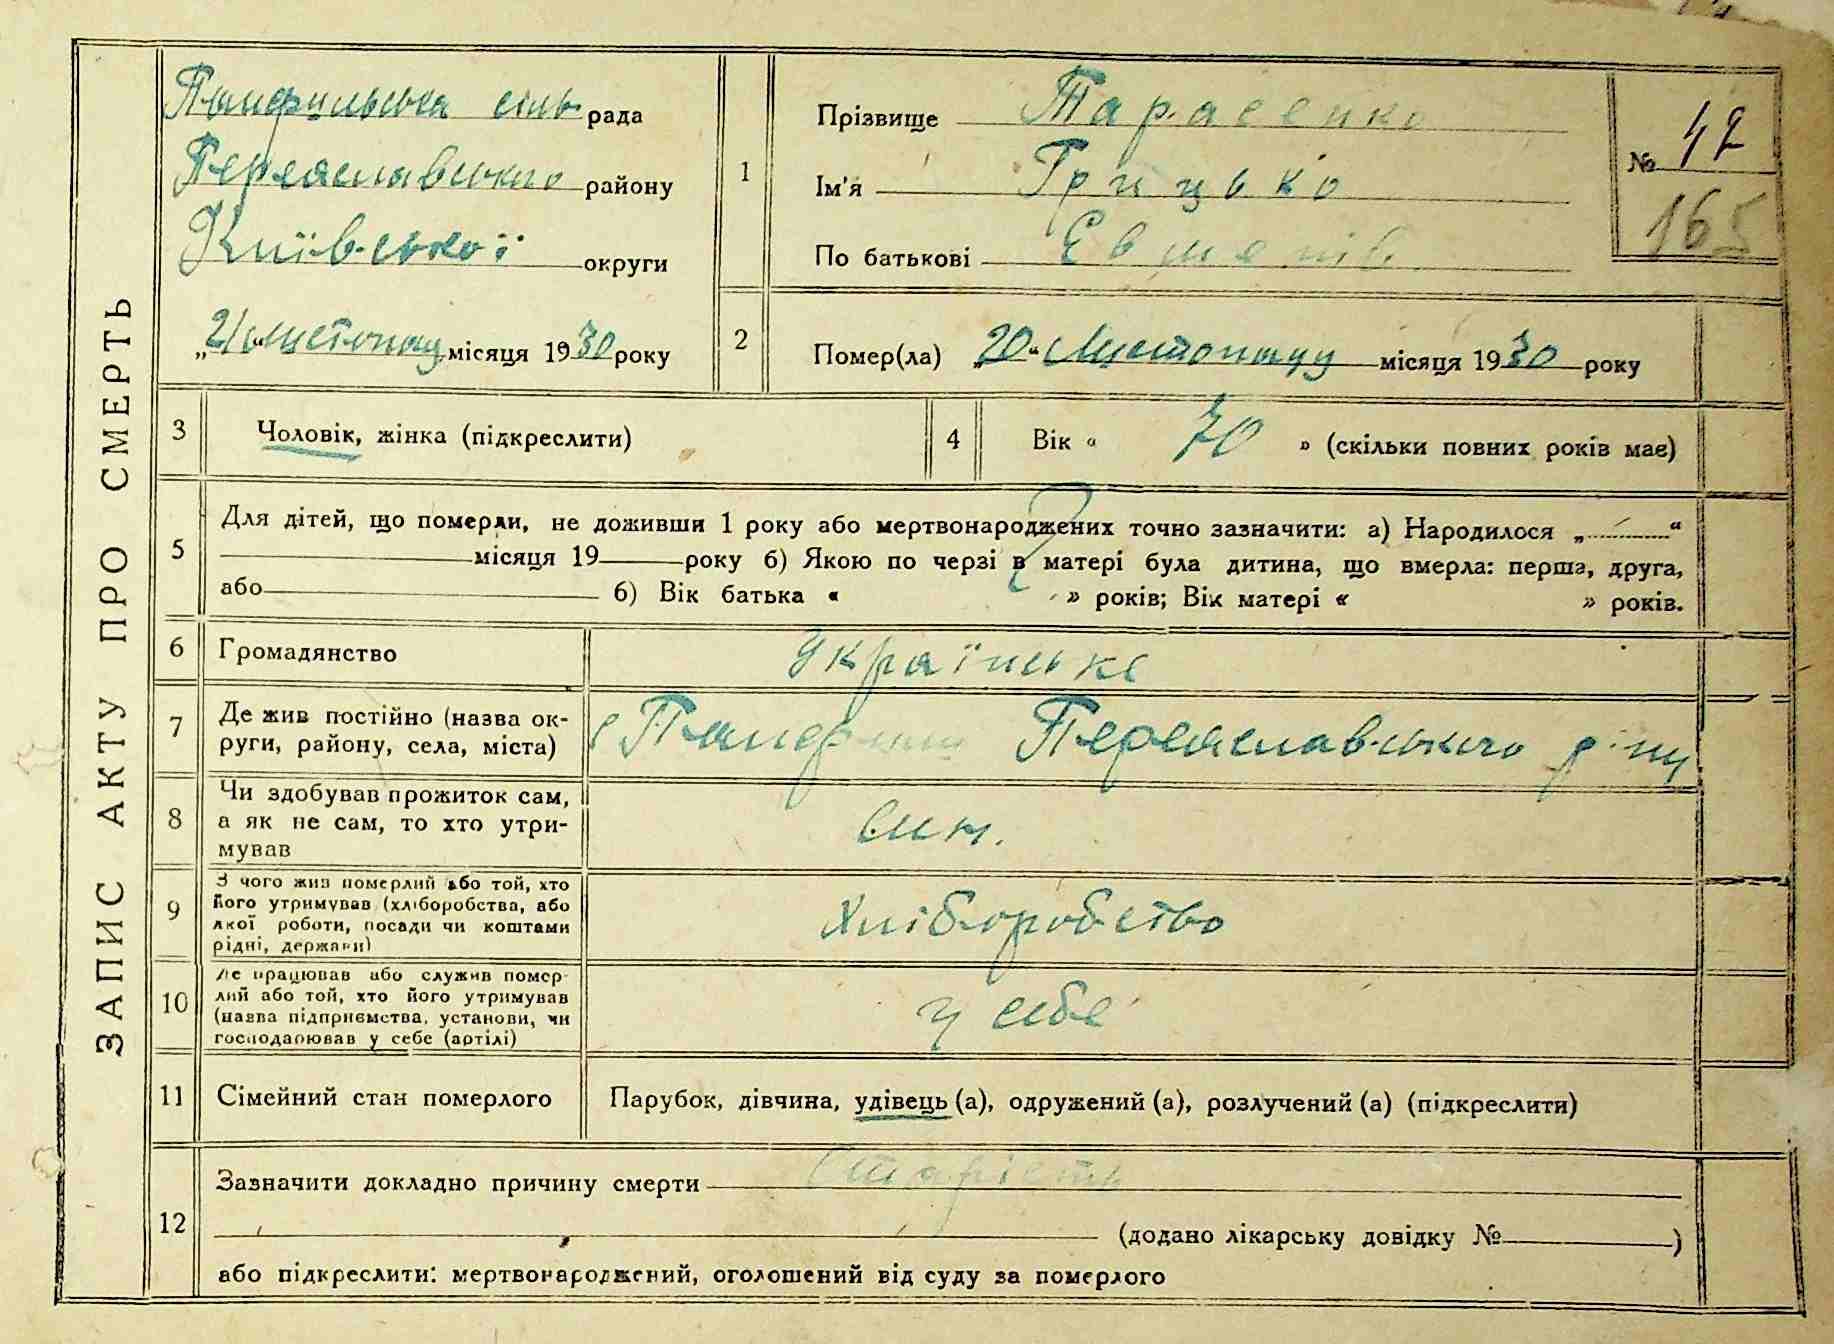 ЗАПИС АКТУ ПРО СМЕРТЬ
Панфильська сіль рада
Переяславського району
Київської округи
„21“ листопад місяця 1930 року
1
Прізвище Тарасенко
Ім'я Грицько
По батькові
№ 42
165
2
Помер(ла) „20“ Листопаду місяця 1930 року
3
Чоловік, жінка (підкреслити)
4
Вік « 70 » (скільки повних років має)
5
Для дітей, що померли, не доживши 1 року або мертвонароджених точно зазначити: а) Народилося „ “
місяця 19 року б) Якою по черзі в матері була дитина, що вмерла: перша, друга,
або б) Вік батька « » років; Вік матері « » років.
6
Громадянство
Українське
7
Де жив постійно (назва ок-
руги, району, села, міста)
с Панфили Переяславського р-ну
8
Чи здобував прожиток сам,
а як не сам, то хто утри-
мував
Син.
9
З чого жив померлий або той, хто
його утримував (хліборобства, або
якої роботи, посади чи коштами
рідні, держави)
Хліборобство
10
Де працював або служив помер-
лий або той, хто його утримував
(назва підприємства, установи, чи
господарював у себе (артілі)
у себе
11
Сімейний стан померлого
Парубок, дівчина, удівець (а), одружений (а), розлучений (а) (підкреслити)
12
Зазначити докладно причину смерти Старість
(додано лікарську довідку № )
або підкреслити: мертвонароджений, оголошений від суду за померлого